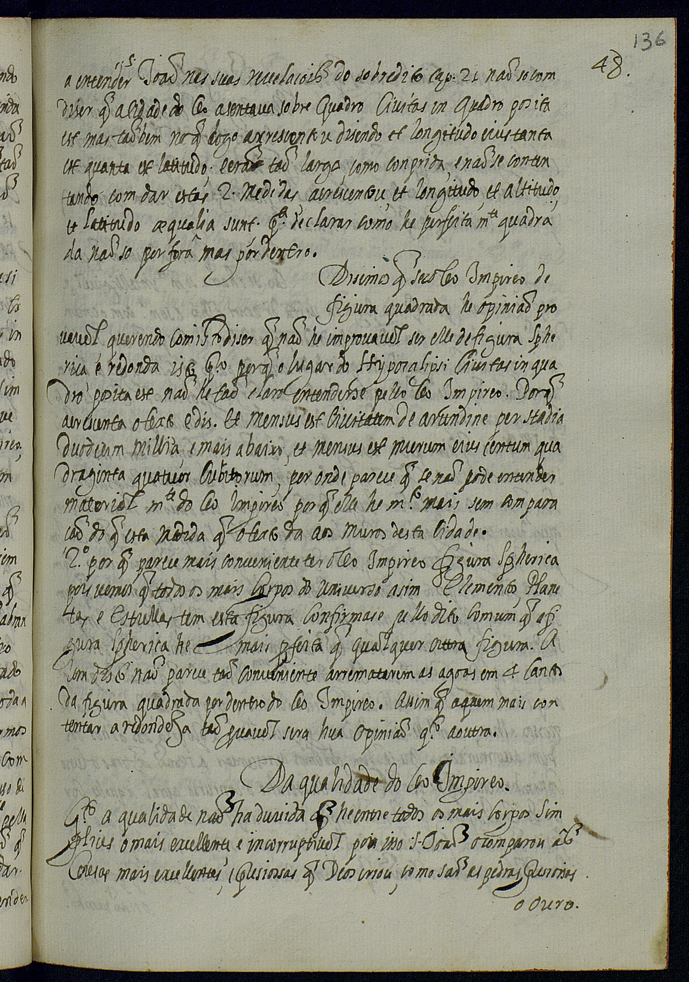 136
48.
a entender S. Joaõ nas suas revelacois do sobredito cap. 21 naõ so com
diser q̃ a Cidade do Ceo asentava sobre quadro Civitas in quadro posita
est mas tambem no q̃ logo acresenta disendo et longitudo eius tanta
est quanta et latitudo: e era taõ larga como conprida e naõ se conten
tando com dar estas 2. Medidas acrescentou et longitudo, et altitudo,
et latitudo æqualia sunt. pª declarar como he perfeita mte quadra
da naõ so por fora mas por dentro.
Dicimos q̃ ser o Ceo Impireo de
figura quadrada he opiniaõ pro
vavel querendo com isto diser q̃ naõ he improvavel ser elle de figura Sphe
rica e redonda isto he porq̃ o lugar do Hypocalipsi Civitas in qua
dro posita est naõ he taõ claro entenderse pello Ceo Impireo. Porq̃
acresenta o texto e dis. Et mensus est Civitatem de arundine per stadia
duodecim millia e mais abaixo, et mensus est murum eius centum qua
draginta quatuor Cubitorum, por onde parece q̃ se naõ pode entender
material mte do Ceo Impireo porq̃ elle he mto mais sem compara
çaõ do q̃ esta medida q̃ o texto da aos muros desta Cidade.
2.º por q̃ parece mais conveniente ter o Ceo Impireo figura Spherica
pois vemos q̃ todos os mais Corpos do Universo asim Elementos, Plane
tas e Estrellas tem esta figura confirmase pello dito comum q̃ a fi
gura Spherica he mais perfeita q̃ qualquer outra figura. A
lem disto naõ parece taõ conveniente arrematarem as agoas em 4 Cantos
da figura quadrada por dentro do Ceo Impireo. Assim q̃ a quem mais con
tentar a redondeza taõ provavel sera hua opiniaõ q.º a outra.
Da qualidade do Ceo Impireo.
Qto a qualidade naõ ha duvida q̃ he entre todos os mais Corpos Sim
plices o mais excellente e incorruptivel por isso S. Joaõ o comparou as
Cousas mais excellentes, e presiosas q̃ Deos criou, como saõ as pedras presiosas
o ouro.